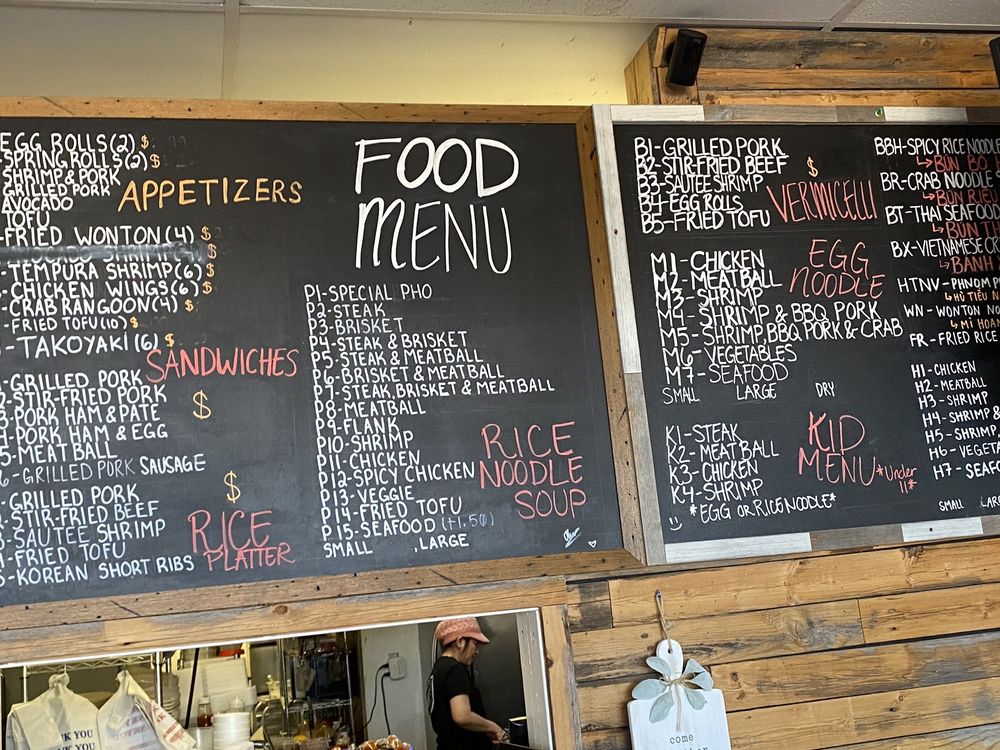 EGG ROLLS(2) $
-SPRING ROLLS(2) $
SHRIMP & PORK
GRILLED PORK
AVOCADO
TOFU
APPETIZERS
-FRIED WONTON(4) $
-TEMPURA SHRIMP(6) $
-CHICKEN WINGS(6) $
-CRAB RANGOON(4) $
-FRIED TOFU(10) $
-TAKOYAKI(6) $
SANDWICHES
$
-GRILLED PORK
-STIR-FRIED PORK
-PORK HAM & PATE
-PORK HAM & EGG
-MEATBALL
-GRILLED PORK SAUSAGE
$
RICE
PLATTER
-GRILLED PORK
-STIR-FRIED BEEF
-SAUTEE SHRIMP
-FRIED TOFU
-KOREAN SHORT RIBS
FOOD
MENU
P1-SPECIAL PHO
P2-STEAK
P3-BRISKET
P4-STEAK & BRISKET
P5-STEAK & MEATBALL
P6-BRISKET & MEATBALL
P7-STEAK, BRISKET & MEATBALL
P8-MEATBALL
P9-FLANK
P10-SHRIMP
P11-CHICKEN
P12-SPICY CHICKEN
P13-VEGGIE
P14-FRIED TOFU
P15-SEAFOOD (+1.50)
SMALL LARGE
RICE
NOODLE
SOUP
B1-GRILLED PORK
B2-STIR-FRIED BEEF
B3-SAUTEE SHRIMP
B4-EGG ROLLS
B5-FRIED TOFU
$
VERMICELLI
M1-CHICKEN
M2-MEATBALL
M3-SHRIMP
M4-SHRIMP & BBQ PORK
M5-SHRIMP, BBQ PORK & CRAB
M6-VEGETABLES
M7-SEAFOOD
SMALL LARGE DRY
EGG
NOODLE
K1-STEAK
K2-MEATBALL
K3-CHICKEN
K4-SHRIMP
*EGG OR RICE NOODLE*
KID
MENU *Under
11*
BBH-SPICY RICE NOODLE
BÚN BÒ
BR-CRAB NOODLE
BÚN RIÊU
BT-THAI SEAFOOD
BÚN
BX-VIETNAMESE
BANH
HTNV-PHNOM
HỦ TIẾU
WN-WONTON
MÌ HOA
FR-FRIED RICE
H1-CHICKEN
H2-MEATBALL
H3-SHRIMP
H4-SHRIMP &
H5-SHRIMP,
H6-
H7-
SMALL
come